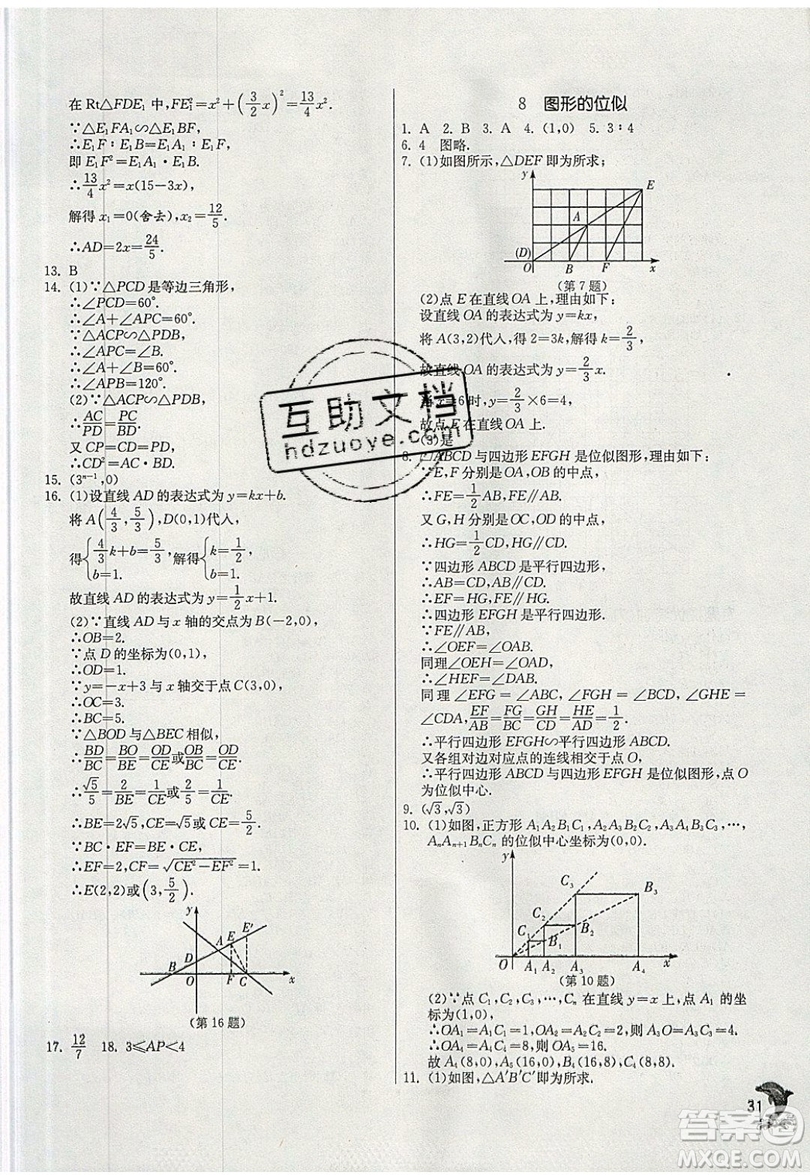 在 Rt△FDE₁ 中,FE₁²=x²+(3/2 x)²=13/4 x².
∵△E₁FA₁∽△E₁BF,
∴E₁F∶E₁B=E₁A₁∶E₁F,
即 E₁F²=E₁A₁·E₁B.
∴13/4 x²=x(15-3x),
解得 x₁=0(舍去),x₂=12/5.
∴AD=2x=24/5.
13. B
14. (1)∵△PCD 是等边三角形,
∴∠PCD=60°.
∴∠A+∠APC=60°.
∵△ACP∽△PDB,
∴∠APC=∠B.
∴∠A+∠B=60°.
∴∠APB=120°.
(2)∵△ACP∽△PDB,
∴AC/PD=PC/BD.
又 CP=CD=PD,
∴CD²=AC·BD.
15. (3ⁿ⁻¹,0)
16. (1)设直线 AD 的表达式为 y=kx+b.
将 A(4/3,5/3),D(0,1)代入,
得{4/3 k+b=5/3, b=1. 解得{k=1/2, b=1.
故直线 AD 的表达式为 y=1/2 x+1.
(2)∵直线 AD 与 x 轴的交点为 B(-2,0),
∴OB=2.
∵点 D 的坐标为(0,1),
∴OD=1.
∵y=-x+3 与 x 轴交于点 C(3,0),
∴OC=3.
∴BC=5.
∵△BOD 与△BEC 相似,
∴BD/BC=BO/BE=OD/CE或OB/BC=OD/CE.
∴√5/5=2/BE=1/CE或2/5=1/CE.
∴BE=2√5,CE=√5或CE=5/2.
∵BC·EF=BE·CE,
∴EF=2,CF=√(CE²-EF²)=1.
∴E(2,2)或(3,5/2).
y
A
E
E′
D
B
O
F
C
x
(第 16 题)
17. 12/7 18. 3≤AP<4
8 图形的位似
1. A 2. B 3. A 4. (1,0) 5. 3∶4
6. 4 图略.
7. (1)如图所示,△DEF 即为所求;
y
E
A
(D)
O
B
F
x
(第 7 题)
(2)点 E 在直线 OA 上,理由如下:
设直线 OA 的表达式为 y=kx,
将 A(3,2)代入,得 2=3k,解得 k=2/3,
故直线 OA 的表达式为 y=2/3 x.
当 x=6 时,y=2/3×6=4,
故点 E 在直线 OA 上.
(3)是
8. ▱ABCD 与四边形 EFGH 是位似图形,理由如下:
∵E,F 分别是 OA,OB 的中点,
∴FE=1/2 AB,FE∥AB.
又 G,H 分别是 OC,OD 的中点,
∴HG=1/2 CD,HG∥CD.
∵四边形 ABCD 是平行四边形,
∴AB=CD,AB∥CD.
∴EF=HG,EF∥HG.
∴四边形 EFGH 是平行四边形.
∵FE∥AB,
∴∠OEF=∠OAB.
同理∠OEH=∠OAD.
∴∠HEF=∠DAB.
同理 ∠EFG = ∠ABC, ∠FGH = ∠BCD, ∠GHE =
∠CDA,EF/AB=FG/BC=GH/CD=HE/AD=1/2.
∴平行四边形 EFGH∽平行四边形 ABCD.
又各组对边对应点的连线相交于点 O,
∴平行四边形 ABCD 与四边形 EFGH 是位似图形,点 O
为位似中心.
9. (√3,√3)
10. (1)如图,正方形 A₁A₂B₁C₁,A₂A₃B₂C₂,…,
AₙAₙ₊₁BₙCₙ 的位似中心坐标为(0,0).
y
C₃
B₃
C₂
B₂
C₁
B₁
O
A₁
A₂
A₃
A₄
x
(第 10 题)
(2)∵点 C₁,C₂,C₃,…,Cₙ 在直线 y=x 上,点 A₁ 的坐
标为(1,0),
∴OA₁=A₁C₁=1,OA₂=A₂C₂=2,
∴OA₃=A₃C₃=4,OA₄=A₄C₄=8.
故 A₄(8,0),A₅(16,0),B₄(16,8),C₄(8,8).
11. (1)如图,△A′B′C′即为所求.
31
互助文档
hdzuoye.com
答案圈
MXQE.COM